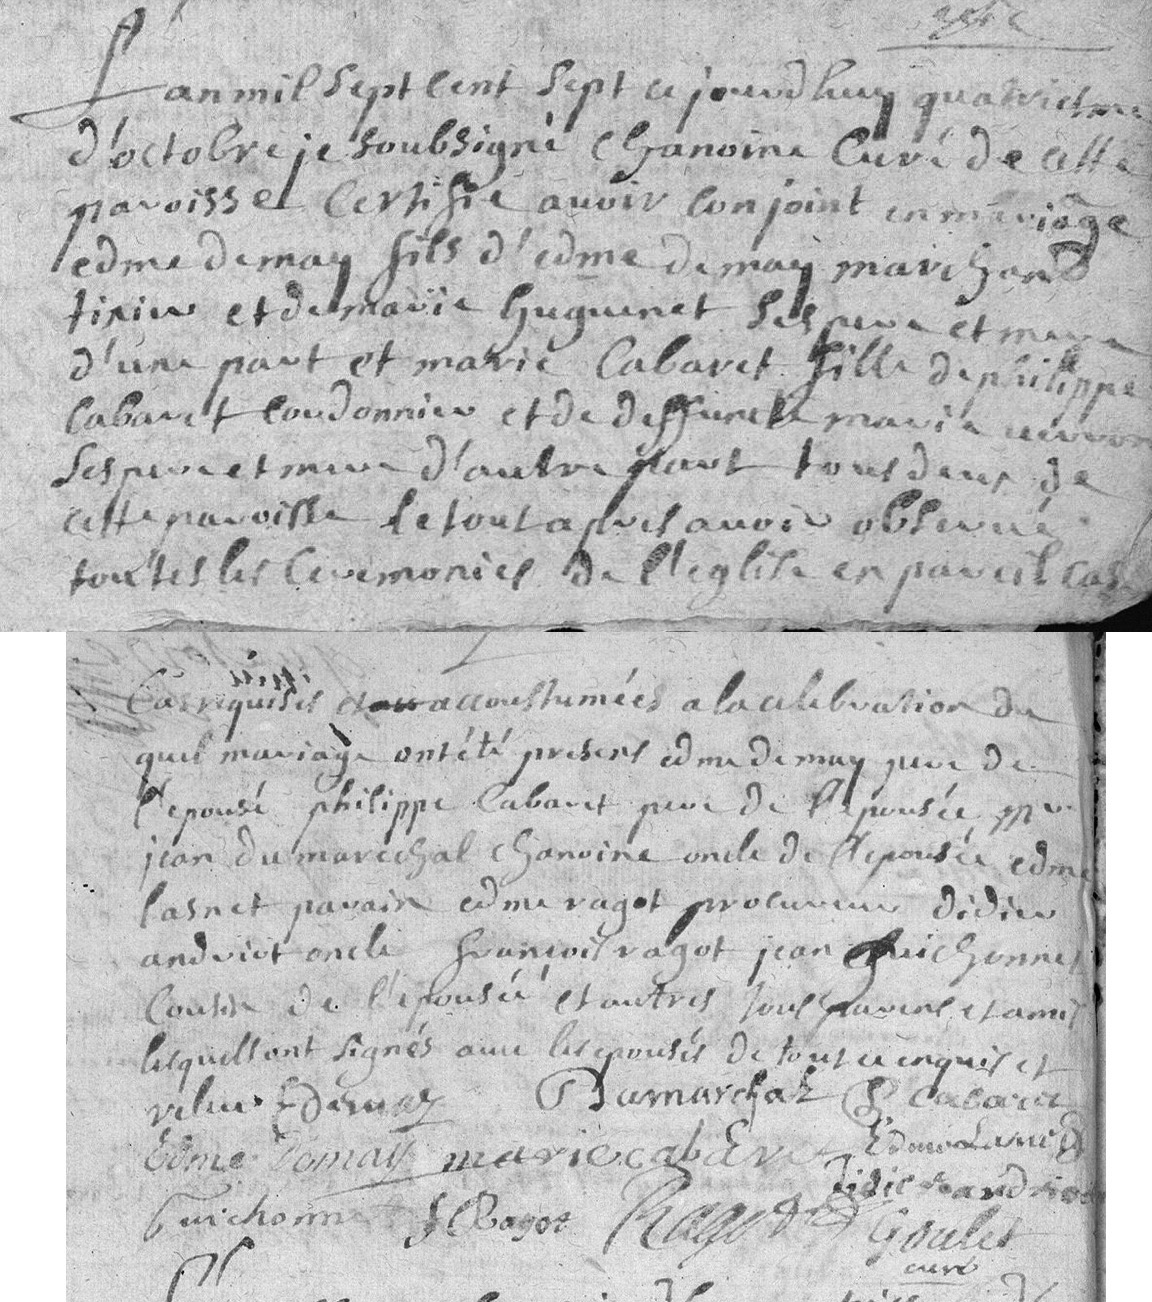 L'an mil sept cent sept ce jourd'huy quatriesme
d'octobre je soubsigné chanoine curé de cette
paroisse certifie avoir conjoint en mariage
edme demay fils d'edme demay marchand
tixier et de marie huguenet ses pere et mere
d'une part et marie Cabaret fille de philippe
Cabaret cordonnier et de deffuncte marie
ses pere et mere d'autre part tous deux de
cette parroisse le tout apres avoir observé
toutes les ceremonies de l'eglise en pareil cas
Cas requises et accoustumées a la celebration du
quel mariage ont été presens edme demay pere de
l'epousé philippe Cabaret pere de l'epousée
jean dumarechal chanoine oncle de l'epousée edme
lasnet parain edme ragot procureur didier
andriot oncle françois ragot jean guichonnet
Cousin de l'epousée et autres tous parens et amis
lesquels ont signés avec les epousés de tout ce enquis et
E Demay Dumarchal P Cabaret
Edme Demay marie cabaret Edme Lasnet
didier andriot
Guichonnet f Ragot Ragot Goulet
curé